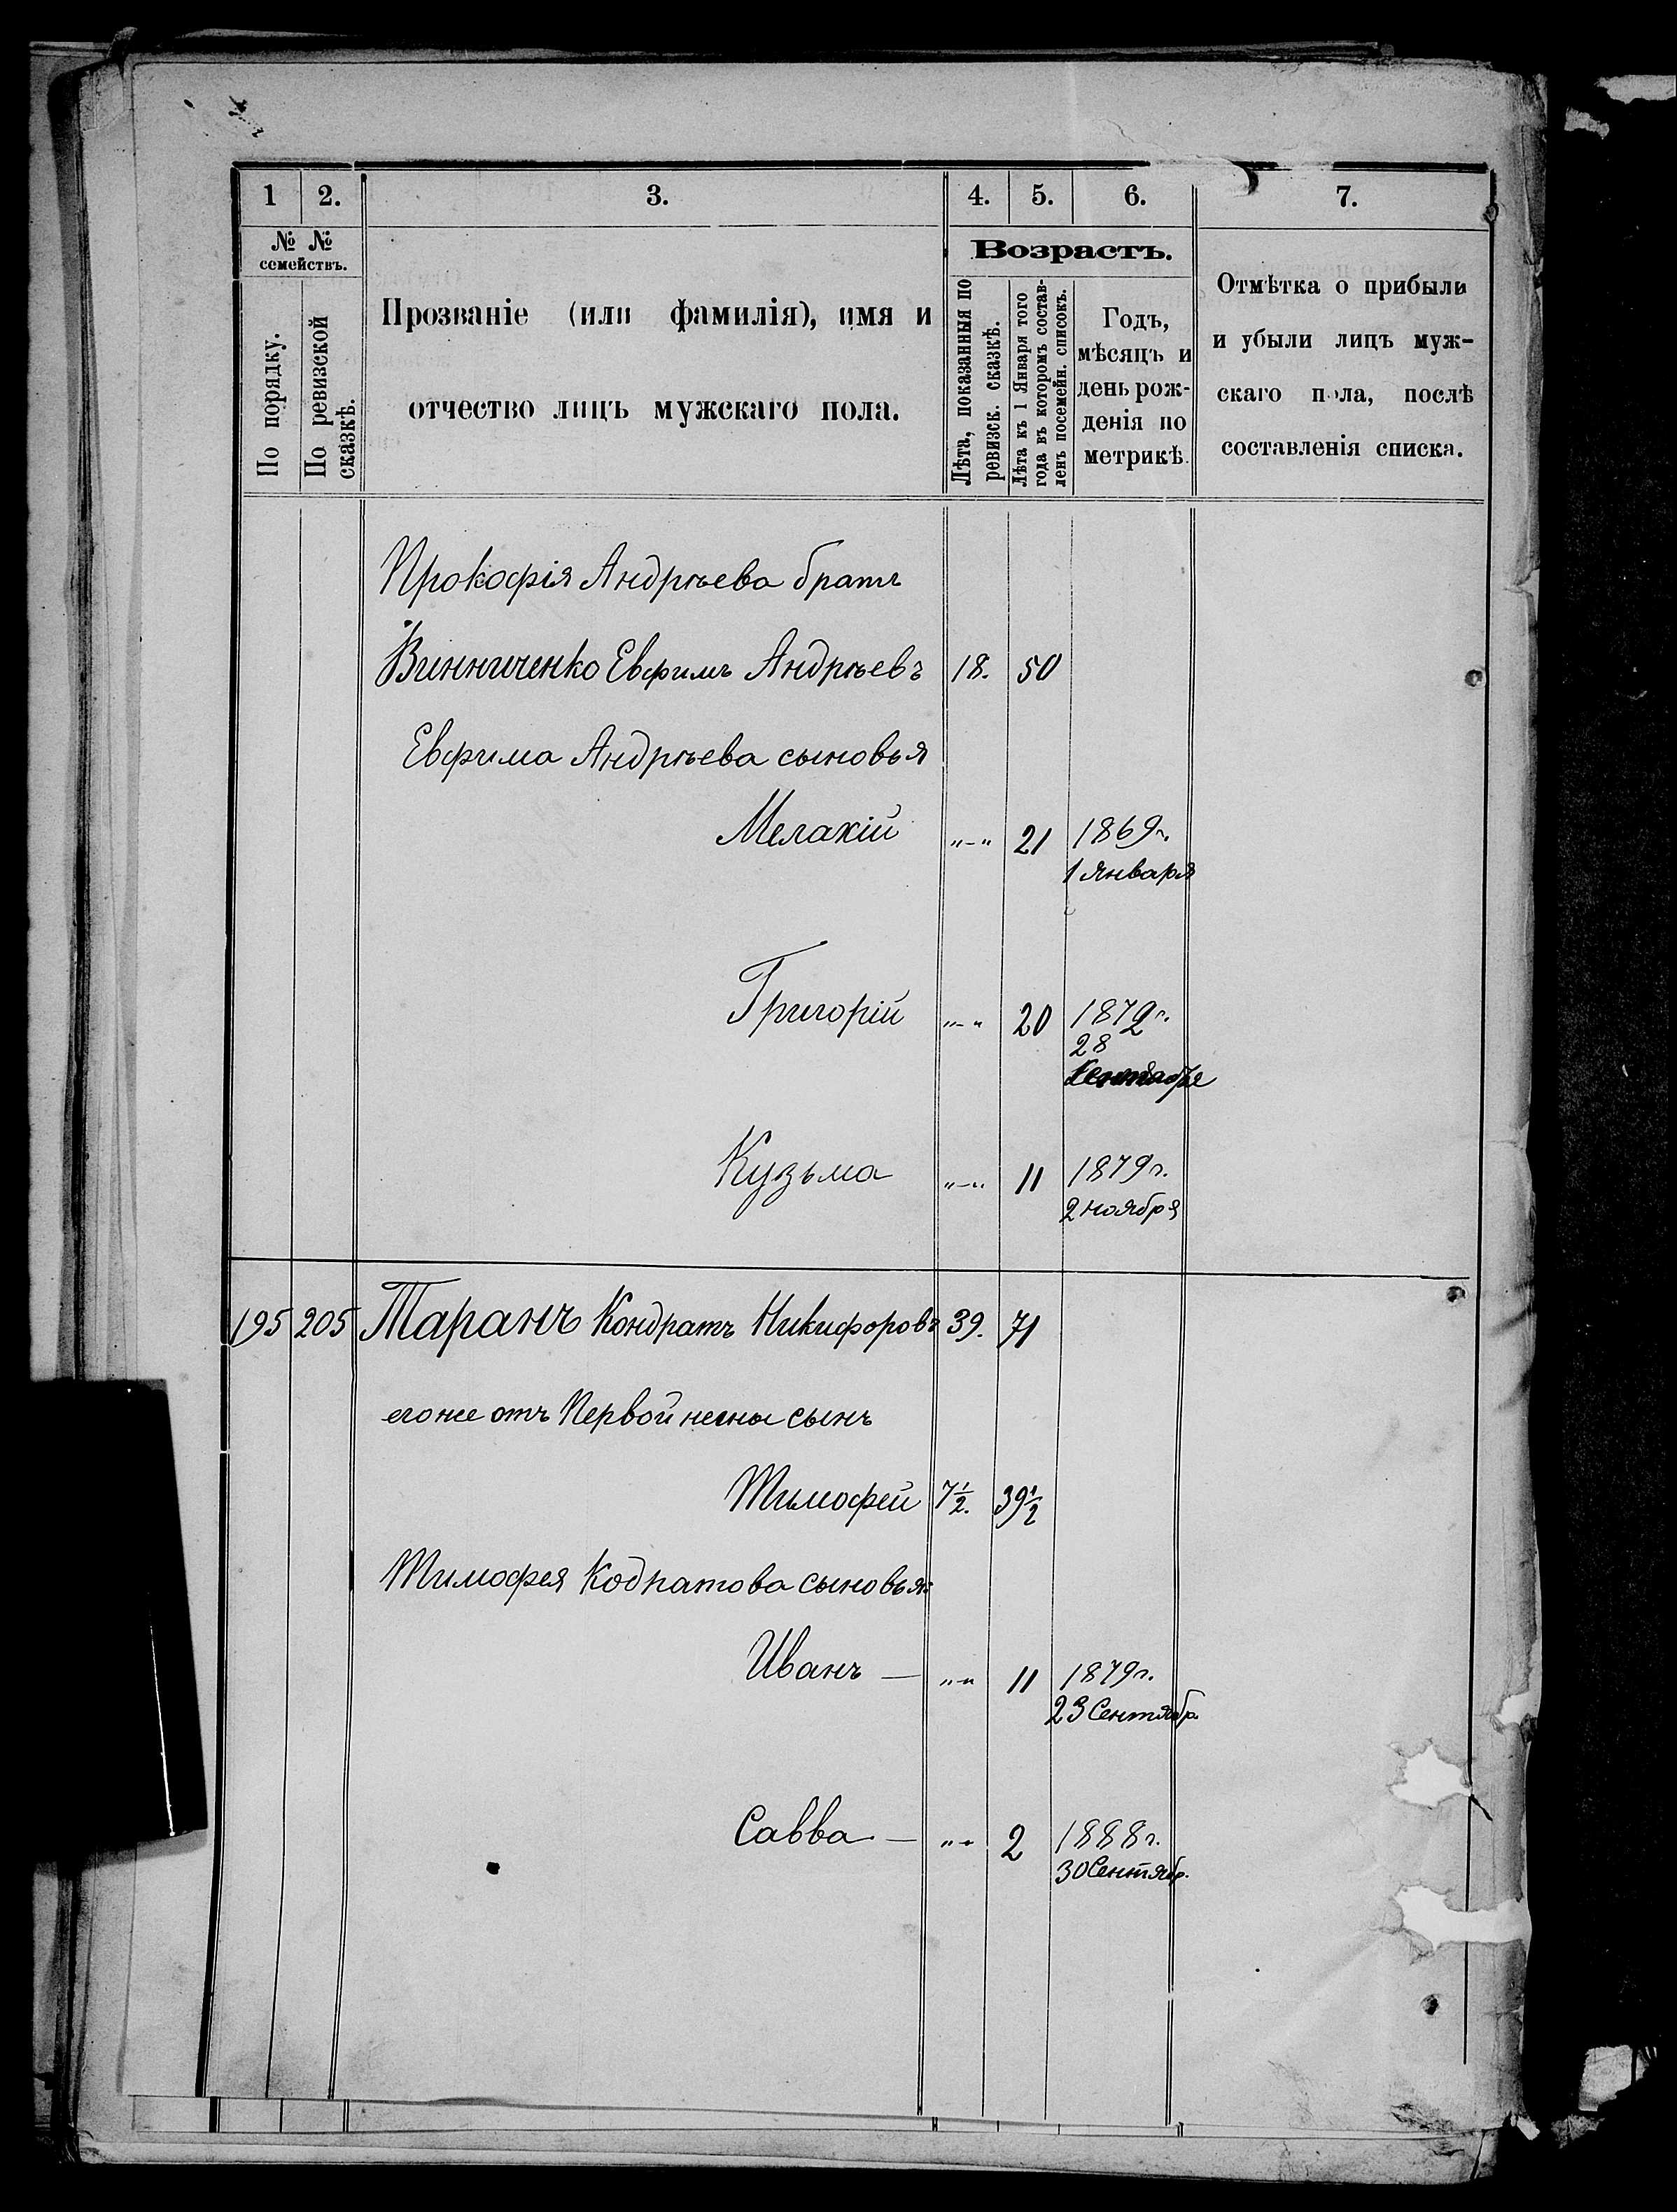 1 2. 3. 4. 5. 6. 7.
№ № семействъ.
По порядку.
По ревизской сказкѣ.
Прозваніе (или фамилія), имя и
отчество лицъ мужскаго пола.
Возрастъ.
Лѣта, показанныя по
ревизск. сказкѣ.
Лѣта къ 1 Января того
года въ которомъ состав-
ленъ посемейн. списокъ.
Годъ,
мѣсяцъ и
день рож-
денія по
метрикѣ.
Отмѣтка о прибыли
и убыли лицъ муж-
скаго пола, послѣ
составленія списка.
Прокофія Андрѣева братъ
Винниченко Евфимъ Андрѣевъ 18. 50
Евфима Андрѣева сыновья
Мелакій „-„ 21 1869г.
1 января
Григорій „-„ 20
28
Сентября
Кузьма „-„ 11 1879г.
2 ноября
195 205 Таранъ Кондратъ Никифоровъ 39. 71
егоже отъ Первой жены сынъ
Тимофей 7½. 39½
Тимофея Кодратова сыновья:
Иванъ — „-„ 11 1879г.
23 Сентябр
Савва — „-„ 2 1888г.
30 Сентябр.